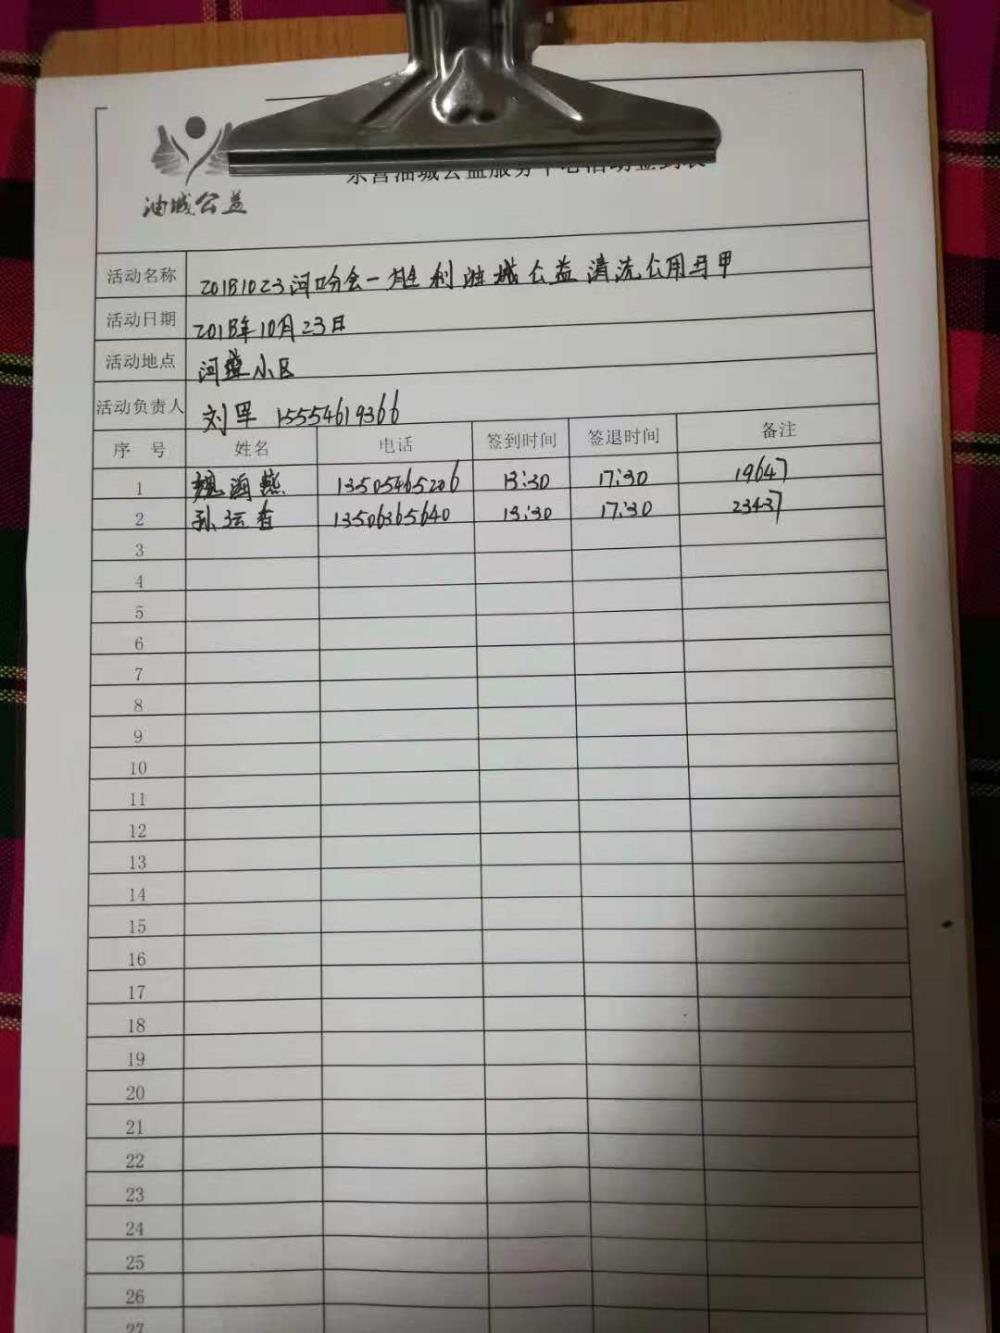 油城公益
东营油城公益服务中心活动签到表
活动名称 20181023河 会一胜利油城公益清流公用马甲
活动日期 2018年10月23日
活动地点 河 小区
活动负责人 刘军 15554619366
序 号 姓名 电话 签到时间 签退时间 备注
1 魏海燕 13505465206 13:30 17:30 19647
2 孙云香 13506365640 13:30 17:30 23437
3
4
5
6
7
8
9
10
11
12
13
14
15
16
17
18
19
20
21
22
23
24
25
26
27